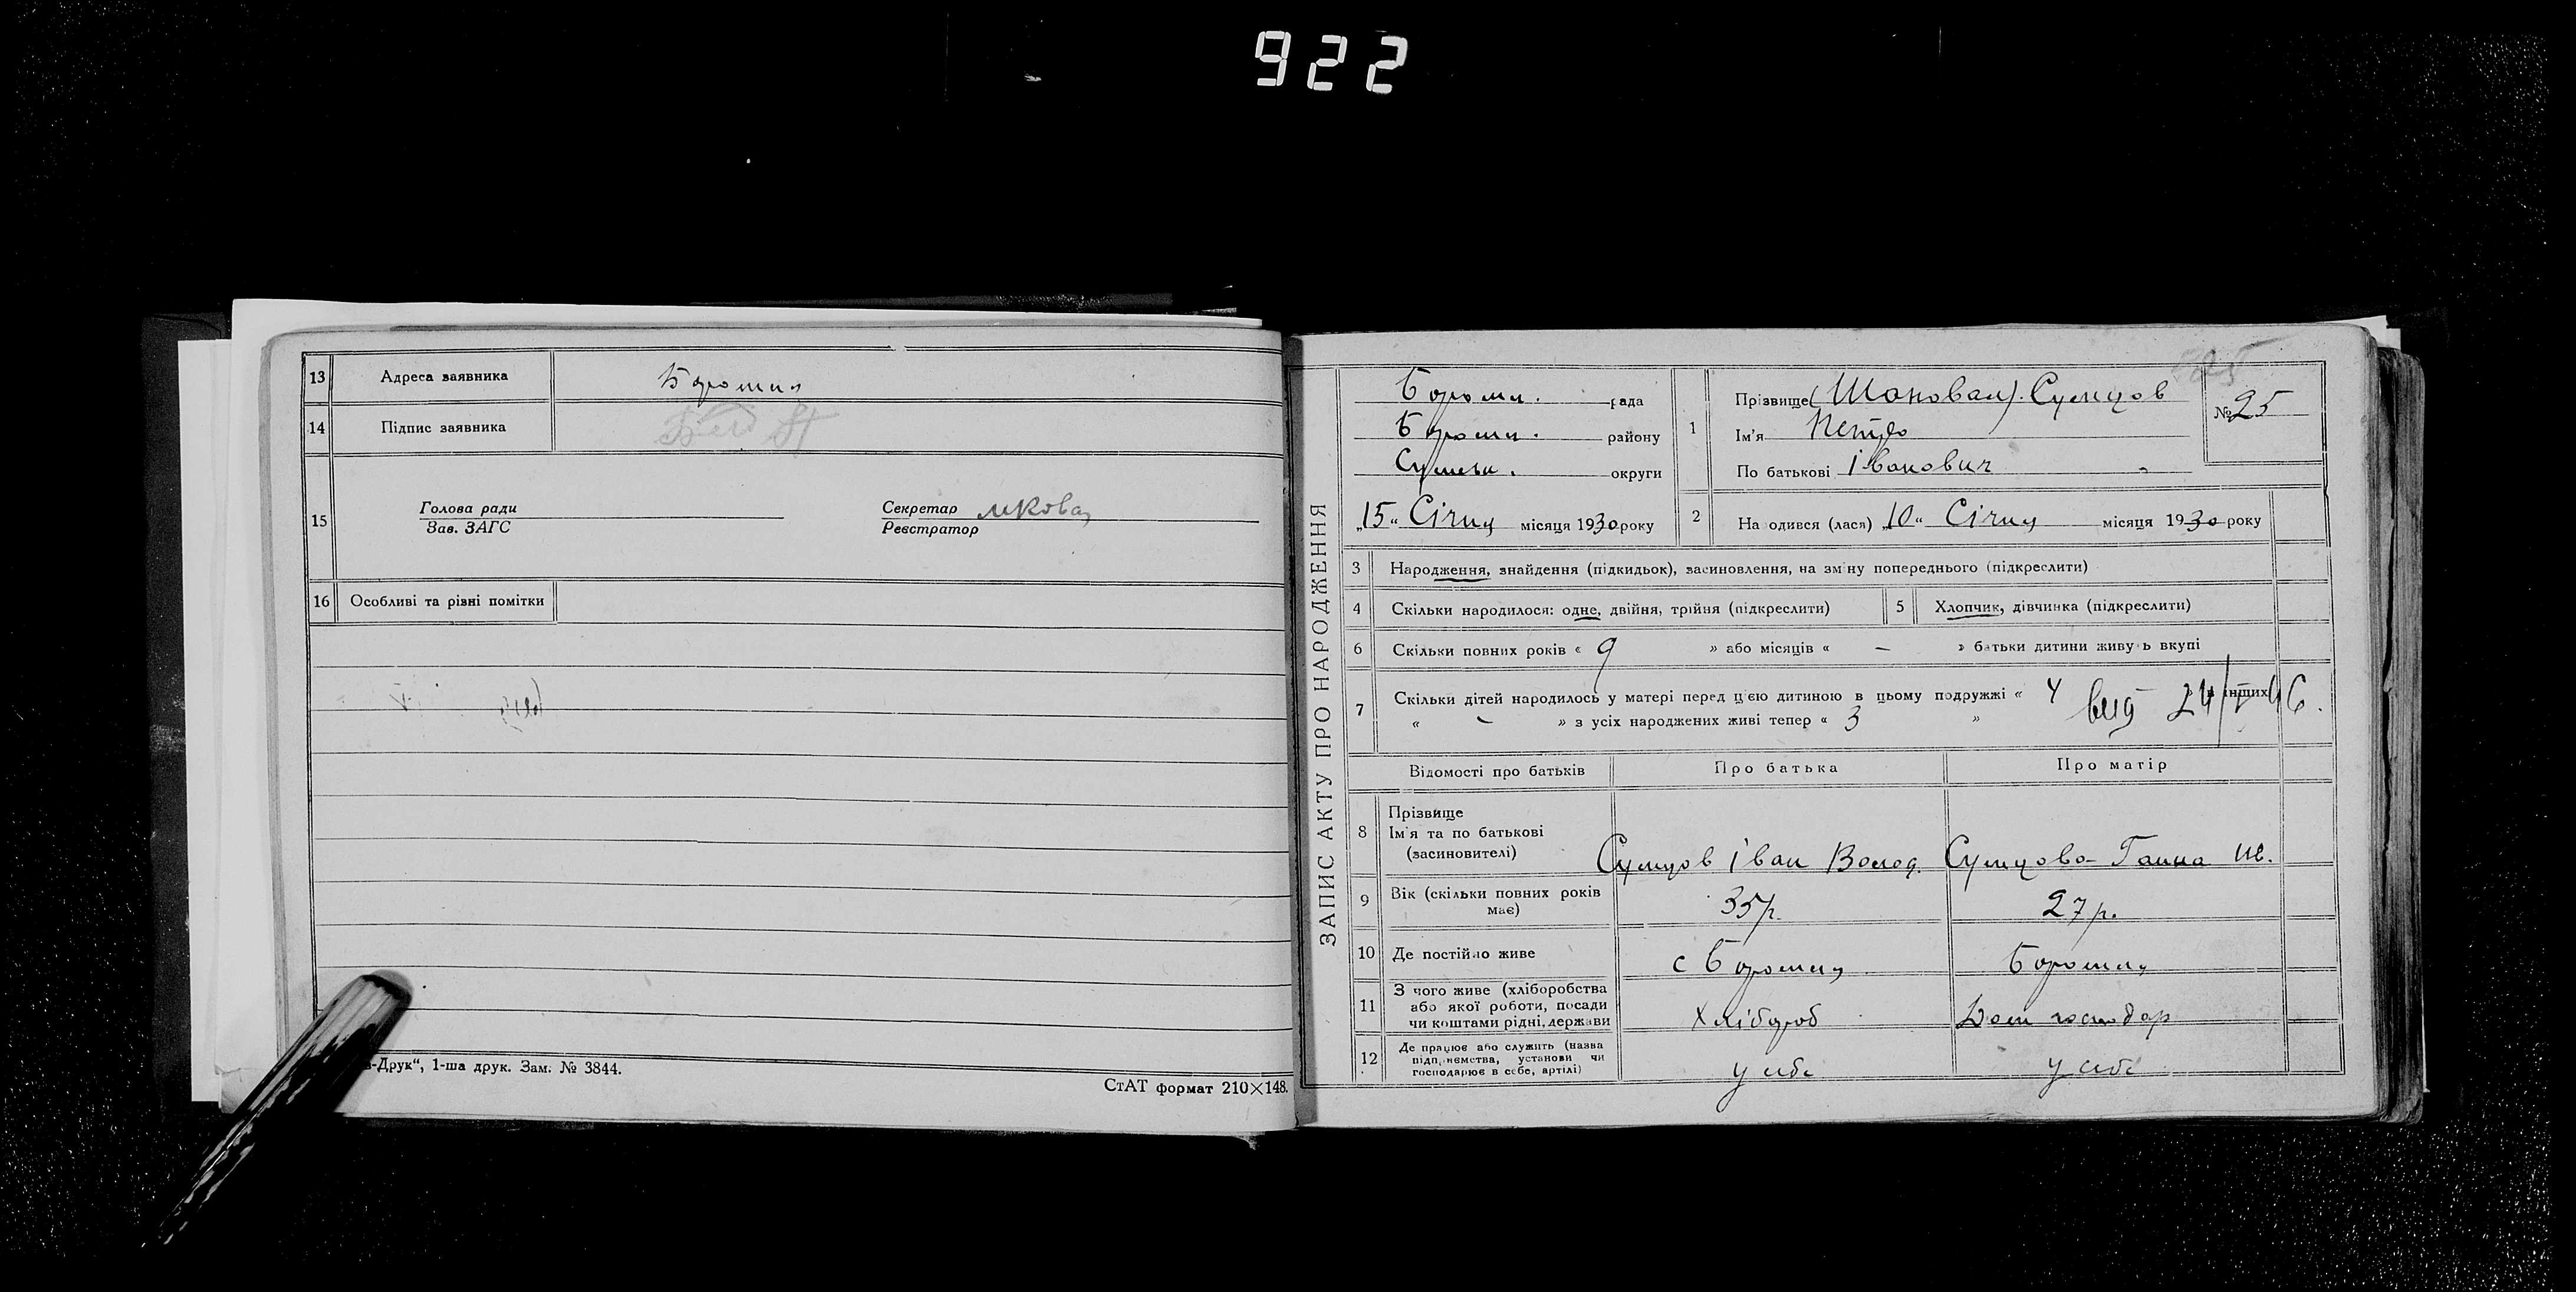 922
13 Адреса заявника Боромля
14 Підпис заявника
15 Голова ради
Зав. ЗАГС
Секретар
Реєстратор
16 Особливі та рівні помітки
-Друк“, 1-ша друк. Зам. № 3844.
СтАТ формат 210×148.
ЗАПИС АКТУ ПРО НАРОДЖЕННЯ
Боромл. рада
Боромл. району
Сумськ. округи
„15“ Січня місяця 1930 року
1 Прізвище (Шаповал). Сумцов
Ім'я Петро
По батькові Іванович
№ 25
2 На одився (лася) „10“ Січня місяця 1930 року
3 Народження, знайдення (підкидьок), засиновлення, на зміну попереднього (підкреслити)
4 Скільки народилося: одне, двійня, трійня (підкреслити)
5 Хлопчик, дівчинка (підкреслити)
6 Скільки повних років « 9 » або місяців « — » батьки дитини живу ь вкупі
7 Скільки дітей народилось у матері перед цією дитиною в цьому подружжі « 4 інших
« - » з усіх народжених живі тепер « 3 »
вид 24/V 46.
Відомості про батьків Про батька Про матір
8 Прізвище
Ім'я та по батькові
(засиновителі)
Сумцов Іван Волод. Сумцова Ганна
9 Вік (скільки повних років
має)
35 р. 27 р.
10 Де постійно живе с Боромля Боромля
11 З чого живе (хліборобства
або якої роботи, посади
чи коштами рідні, держави
Хлібороб Дом господар
12 Де працює або служить (назва
підприємства, установи чи
господарює в себе, артілі)
у себе у себе